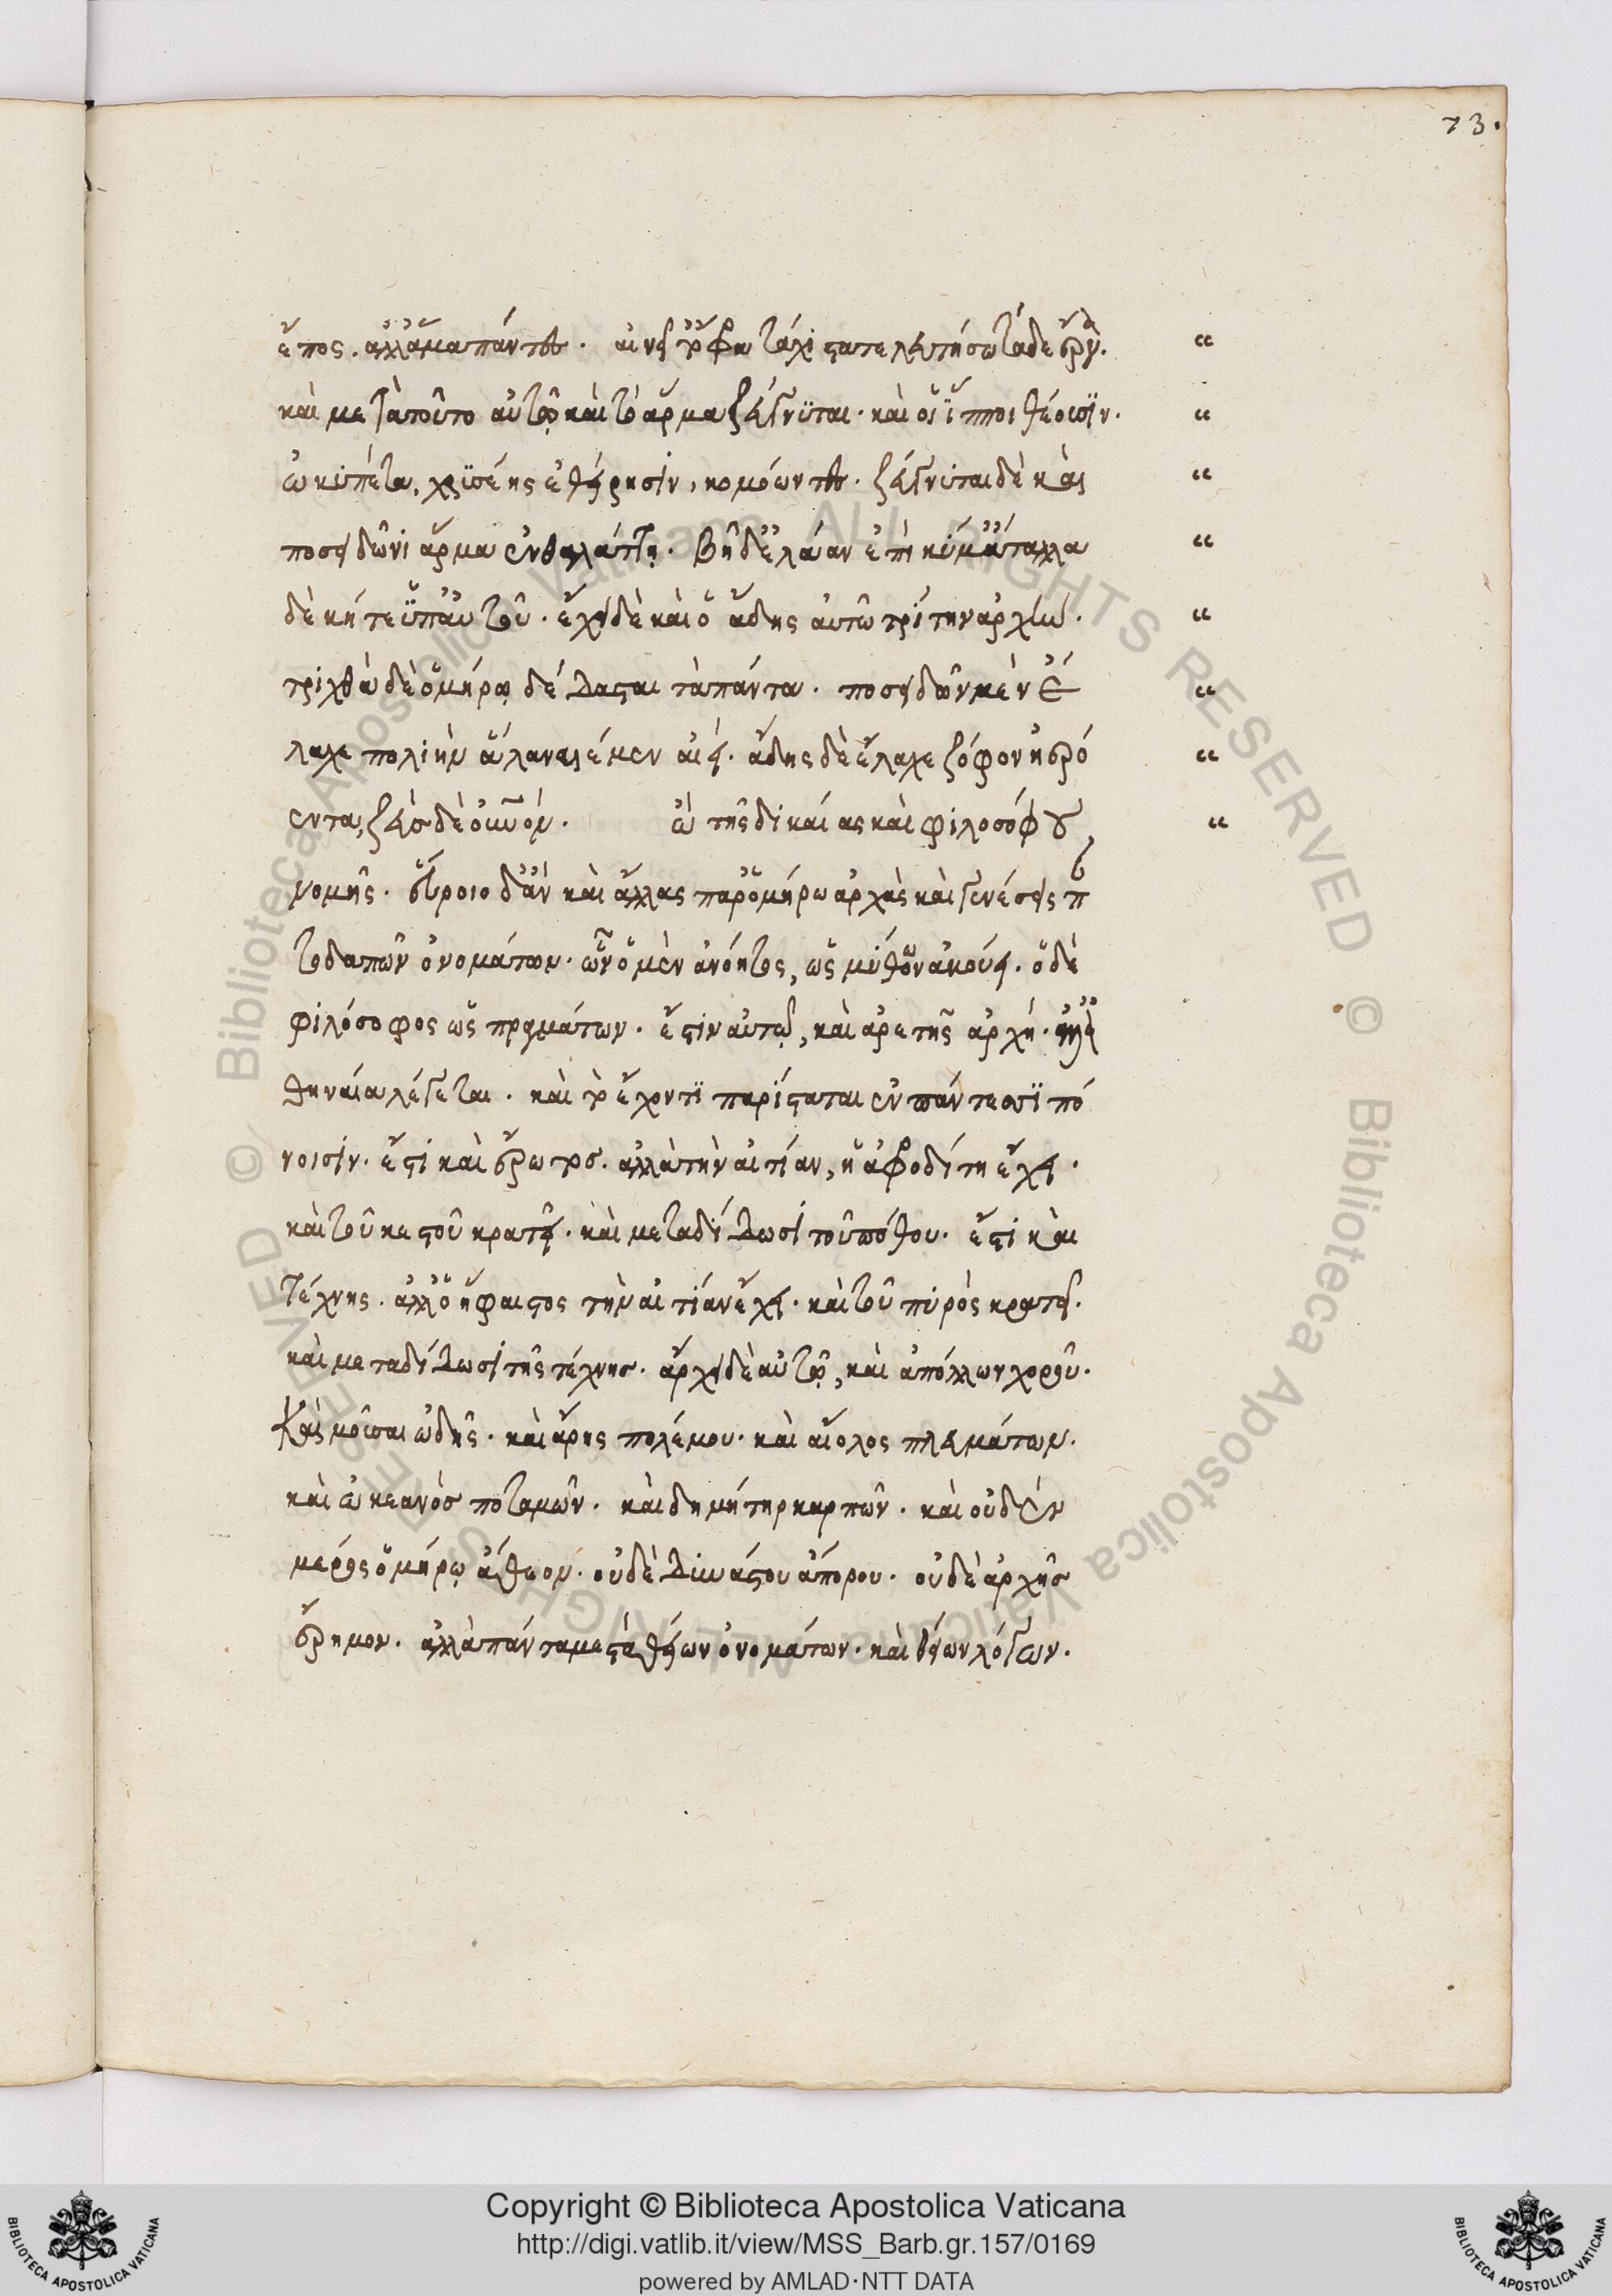 73.
ἔπος. ἀλλ' ἅμα πάντες. αἰνεῖ ὄφρα τάχιστα τελευτήσω τάδε ἔργα. “
καὶ μετὰ τοῦτο αὐτῷ καὶ τὸ ἅρμα ζεύγνϋται. καὶ οἱ ἵπποι θέουσϊν. “
ὠκυπέτα, χρϋσέῃς ἐθείρῃσιν, κομόωντε. ζεύγνυται δὲ καὶ “
ποσειδῶνι ἅρμα ἐν θαλάττῃ. βῆ δ' ἐλάαν ἐπὶ κύματ' ἄταλλα “
δὲ κήτε ὑπ' αὐτοῦ. ἔχει δὲ καὶ ὁ ἅδης αὐτῶ τρίτην ἀρχὴν. “
τριχθὰ δὲ ὁμήρῳ δέδασται τὰ πάντα. ποσειδῶν μὲν ἔ “
λαχε πολιὴν ἅλα ναιέμεν αἰεί. ἅδης δὲ ἔλαχε ζόφον ἠερό “
εντα, ζεὺσ δὲ οὐρανόν. ὢ τῆς δικαίας καὶ φιλοσόφου “
νομῆς. εὕροιο δ' ἂν καὶ ἄλλας παρ' ὁμήρω ἀρχὰς καὶ γενέσεις π
τοδαπῶν ὀνομάτων. ὧν ὁ μὲν ἀνόητος, ὡς μύθων ἀκούει. ὁ δὲ
φιλόσοφος ὡς πραγμάτων. ἔστιν αὐτῷ, καὶ ἀρετῆς ἀρχή.
θηναία λέγεται. καὶ τῷ ἔχοντϊ παρίσταται ἐν πάντεσσϊ πό
νοισιν. ἔστι καὶ ἔρωτος. ἀλλὰ τὴν αἰτίαν, ἡ ἀφροδίτη ἔχει.
καὶ τοῦ κεστοῦ κρατεῖ. καὶ μεταδίδωσι τοῦ πόθου. ἔστι καὶ
τέχνης. ἀλλ' ὁ ἥφαιστος τὴν αἰτίαν ἔχει. καὶ τοῦ πυρὸς κρατεῖ.
καὶ μεταδίδωσι τῆς τέχνησ. ἄρχει δὲ αὐτῷ, καὶ ἀπόλλων χοροῦ.
Καὶ μοῦσαι ὠδῆς. καὶ ἄρης πολέμου. καὶ αἴολος πνευμάτων.
καὶ ὠκεανὸσ ποταμῶν. καὶ δημήτηρ καρπῶν. καὶ οὐδὲν
μέρος ὁμήρῳ ἄθεον. οὐδὲ δυνάστου ἄπορον. οὐδὲ ἀρχῆσ
ἔρημον. ἀλλὰ πάντα μεστὰ θείων ὀνομάτων. καὶ θείων λόγων.
Copyright © Biblioteca Apostolica Vaticana
http://digi.vatlib.it/view/MSS_Barb.gr.157/0169
powered by AMLAD·NTT DATA
BIBLIOTECA APOSTOLICA VATICANA
BIBLIOTECA APOSTOLICA VATICANA